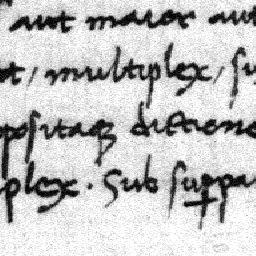 aut maior aut
multiplex, su
positaqꝫ dictione
plex. Sub suppa